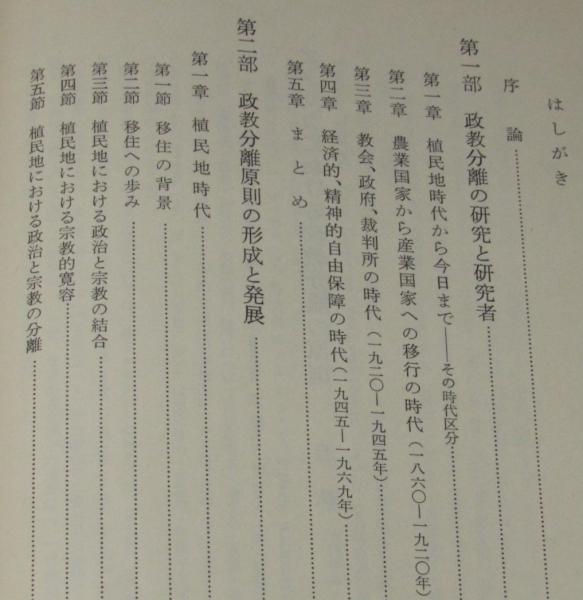 はしがき
序論
第一部 政教分離の研究と研究者
第一章 植民地時代から今日まで――その時代区分
第二章 農業国家から産業国家への移行の時代(一八六〇―一九二〇年)
第三章 教会、政府、裁判所の時代(一九二〇―一九四五年)
第四章 経済的、精神的自由保障の時代(一九四五―一九六九年)
第五章 まとめ
第二部 政教分離原則の形成と発展
第一章 植民地時代
第一節 移住の背景
第二節 移住への歩み
第三節 植民地における政治と宗教の結合
第四節 植民地における宗教的寛容
第五節 植民地における政治と宗教の分離